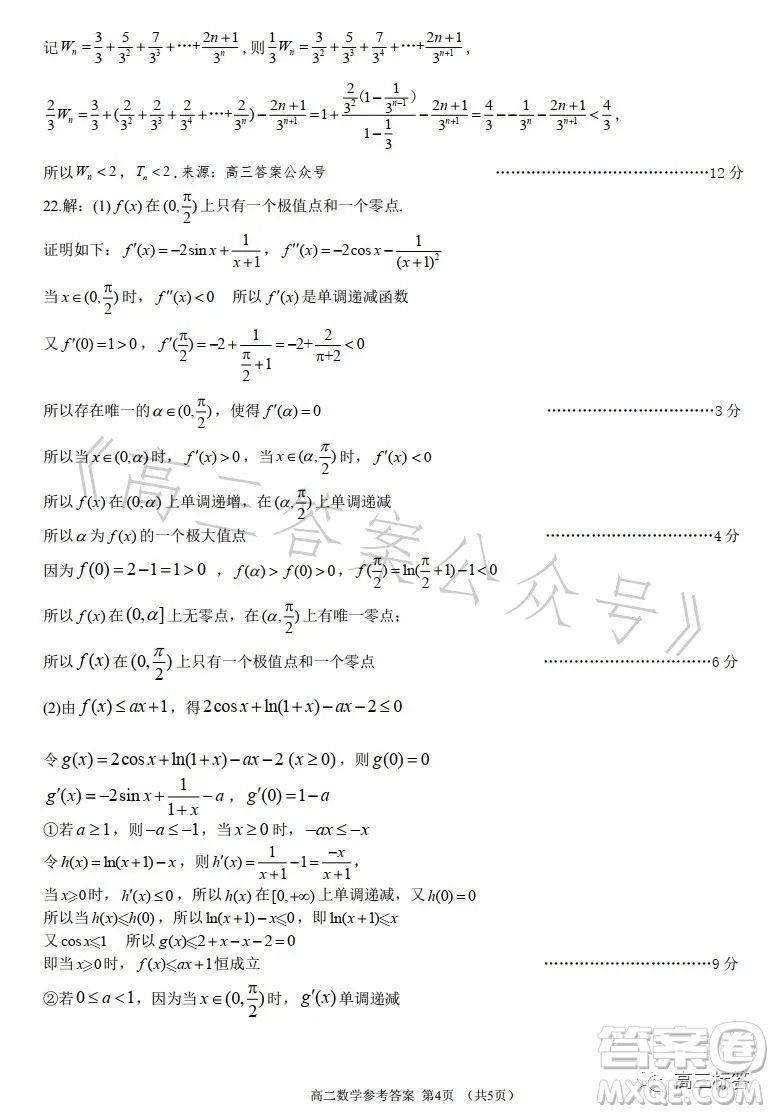 记Wₙ=3/3+5/3²+7/3³+···+(2n+1)/3ⁿ, 则1/3 Wₙ=3/3²+5/3³+7/3⁴+···+(2n+1)/3ⁿ⁺¹,
2/3 Wₙ=3/3+(2/3²+2/3³+2/3⁴+···+2/3ⁿ)-(2n+1)/3ⁿ⁺¹=1+(2/3²(1-1/3ⁿ⁻¹))/(1-1/3)-(2n+1)/3ⁿ⁺¹=4/3--1/3ⁿ-(2n+1)/3ⁿ⁺¹<4/3,
所以Wₙ<2, Tₙ<2.来源:高三答案公众号 ………………………………………12分
22.解:(1) f(x)在(0,π/2)上只有一个极值点和一个零点.
证明如下:f′(x)=-2sinx+1/(x+1), f″(x)=-2cosx-1/(x+1)²
当x∈(0,π/2)时, f″(x)<0 所以f′(x)是单调递减函数
又f′(0)=1>0, f′(π/2)=-2+1/(π/2+1)=-2+2/(π+2)<0
所以存在唯一的α∈(0,π/2), 使得f′(α)=0 ………………………………3分
所以当x∈(0,α)时, f′(x)>0, 当x∈(α,π/2)时, f′(x)<0
所以f(x)在(0,α)上单调递增,在(α,π/2)上单调递减
所以α为f(x)的一个极大值点 ………………………………4分
因为f(0)=2-1=1>0 , f(α)>f(0)>0, f(π/2)=ln(π/2+1)-1<0
所以f(x)在(0,α]上无零点,在(α,π/2)上有唯一零点;
所以f(x)在(0,π/2)上只有一个极值点和一个零点 ………………………………6分
(2)由f(x)≤ax+1, 得2cosx+ln(1+x)-ax-2≤0
令g(x)=2cosx+ln(1+x)-ax-2 (x≥0), 则g(0)=0
g′(x)=-2sinx+1/(1+x)-a, g′(0)=1-a
①若a≥1, 则-a≤-1, 当x≥0时, -ax≤-x
令h(x)=ln(x+1)-x, 则h′(x)=1/(x+1)-1=-x/(x+1),
当x⩾0时, h′(x)≤0, 所以h(x)在[0,+∞)上单调递减,又h(0)=0
所以当h(x)⩽h(0), 所以ln(x+1)-x⩽0, 即ln(x+1)⩽x
又cosx⩽1 所以g(x)⩽2+x-x-2=0
即当x⩾0时, f(x)⩽ax+1恒成立 ………………………………9分
②若0≤a<1, 因为当x∈(0,π/2)时, g′(x)单调递减
《高三答案公众号》
高二数学参考答案 第4页 (共5页)
高三标答
答案圈
MXQE.COM